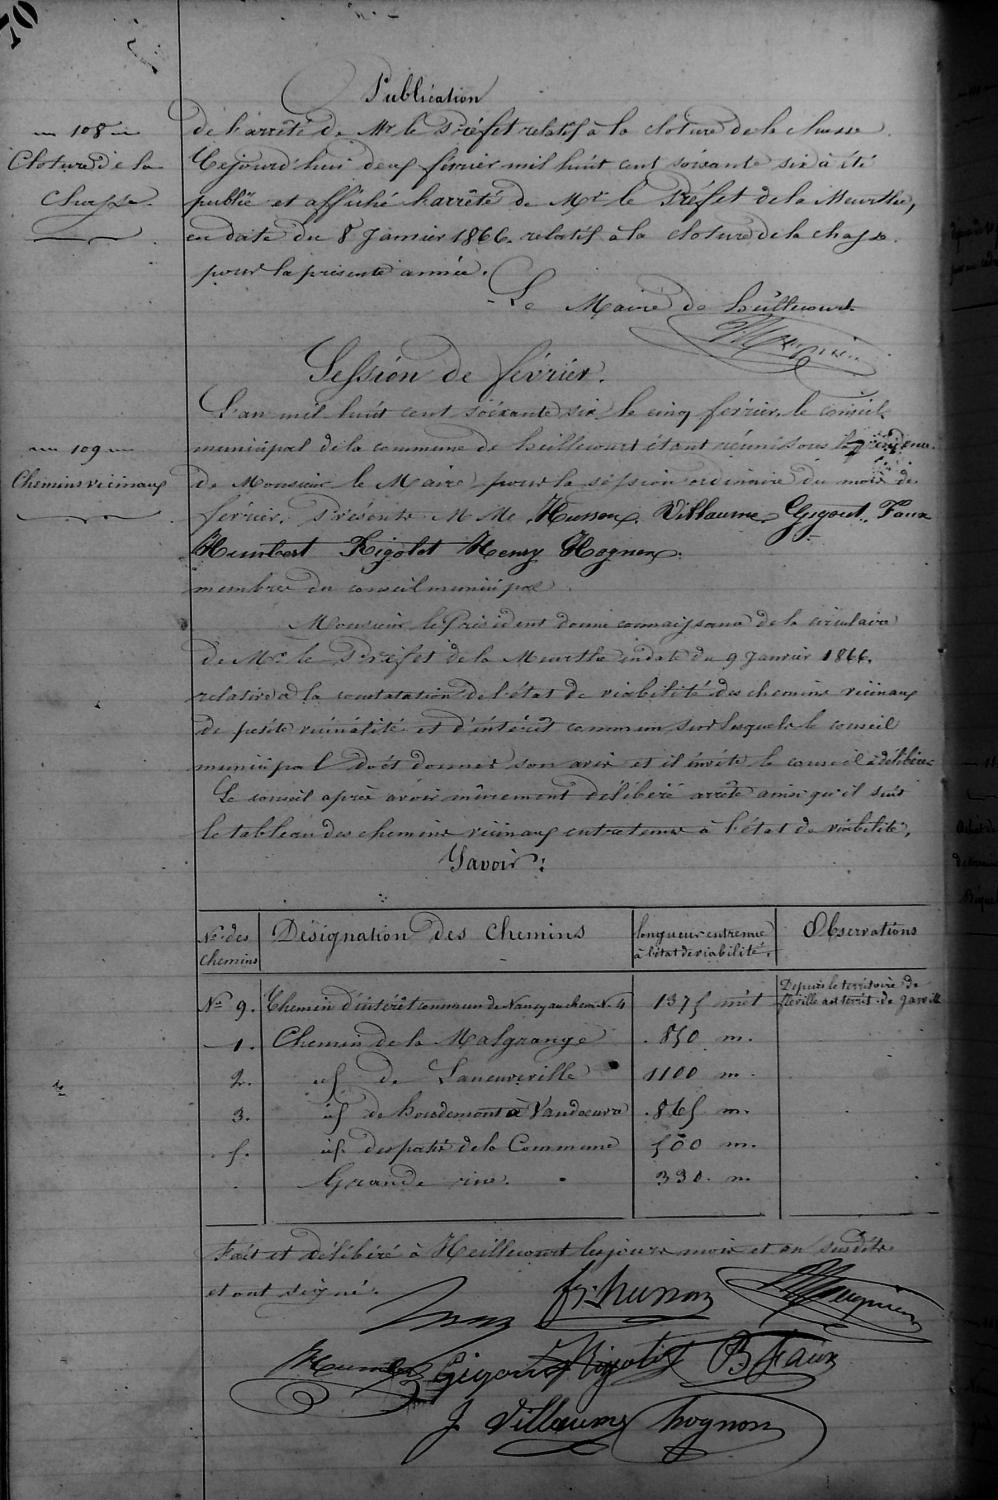 70
Publication
108
Cloture de la
Chasse.
de l'arrêté de Mr le Préfet relatif à la cloture de la chasse.
Cejourd'hui deux février mil huit cent soixante six à été
publié et affiché l'arrêté de Mr le Préfet de la Meurthe,
en date du 8 Janvier 1866. relatif à la cloture de la chasse.
pour la présente année.
Le Maire de heillecourt
Session de février.
L'an mil huit cent soixante six, le cinq février, le conseil
109
Chemins vicinaux
municipal de la commune de heillecourt étant réuni sous la présidence
de Monsieur le Maire pour la session ordinaire du mois de
février, Présents M Me Husson, Villaume, Gigout, Faux
Humbert Rigolot Henry Hognon.
membres du conseil municipal.
Monsieur le Président donne connaissance de la circulaire
de Mr le Préfet de la Meurthe en date du 9 Janvier 1866.
relative à la constatation de l'état de viabilité des chemins vicinaux
de petite vicinalité et d'intérêt commun sur lesquels le conseil
municipal doit donner son avis et il invite le conseil à délibérer
Le conseil après avoir mûrement délibéré arrête ainsi qu'il suit
le tableau des chemins vicinaux entretenus à l'état de viabilité,
Savoir:
Nos des chemins
Désignation des Chemins
longueur entretenue à l'état de viabilité.
Observations
No 9. Chemin d'intérêt commun de Nancy au chem. No 4 1375 mèt Depuis le territoire de
fléville au territ. de Jarville
1. Chemin de la Malgrange 850 m.
2. id de Laneuveville 1100 m.
3. id de houdemont à Vandoeuvre 865 m.
5. id des patis de la Commune 500 m.
Grande rue. 330. m.
Fait et délibéré à Heillecourt les jours mois et an susdits
et ont signé.
fr. husson
Humbert Gigout Rigolot B Faux
J Villaume hognon